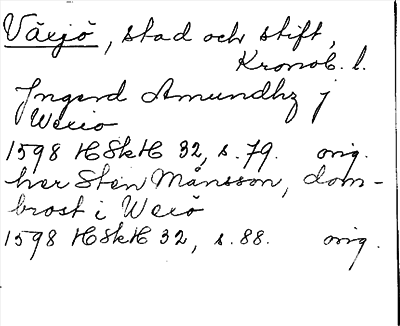 Växjö, stad och stift,
Kronob. l.
Jngerd Amundhz j
Wexio
1598 HSkH 32, s. 79. orig.
her Sten Månsson, dom-
brost i Wexiö
1598 HSkH 32, s. 88. orig.